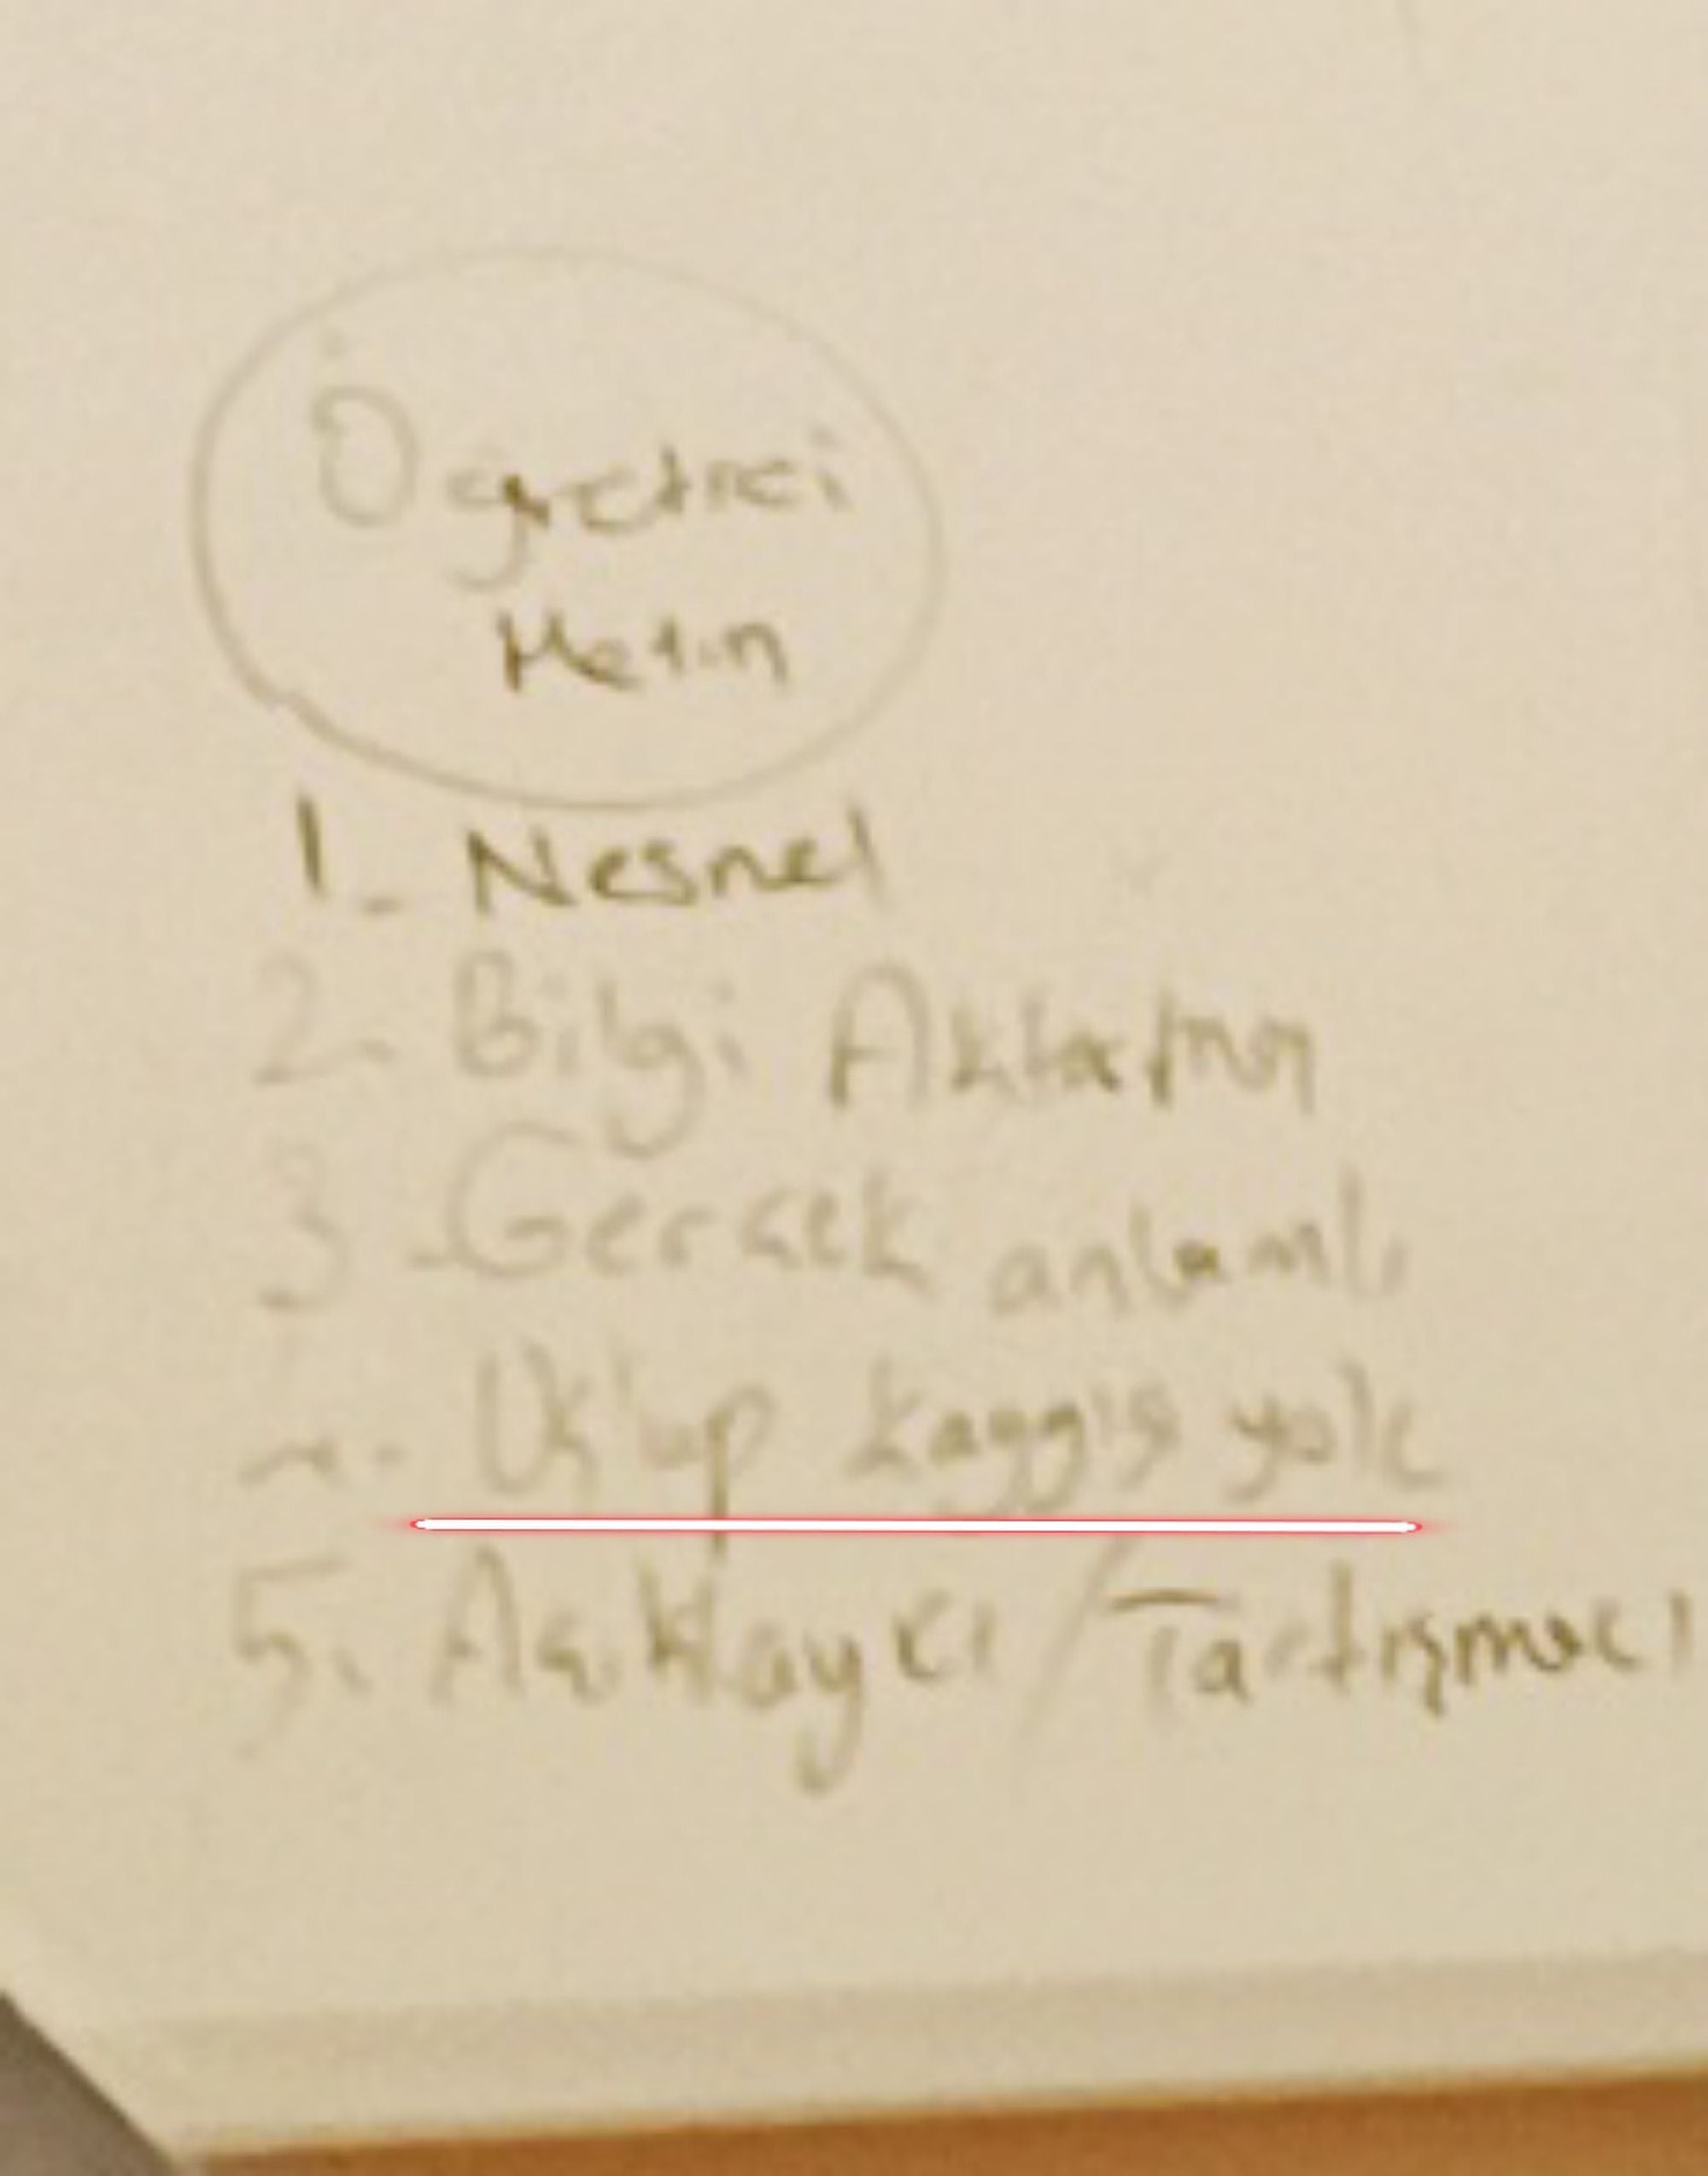 Öğretici
Metin
1- Nesnel
2- Bilgi Aktarımı
3-Gerçek anlamlı
4- Üslup kaygısı yok
5. Açıklayıcı / Tartışmacı